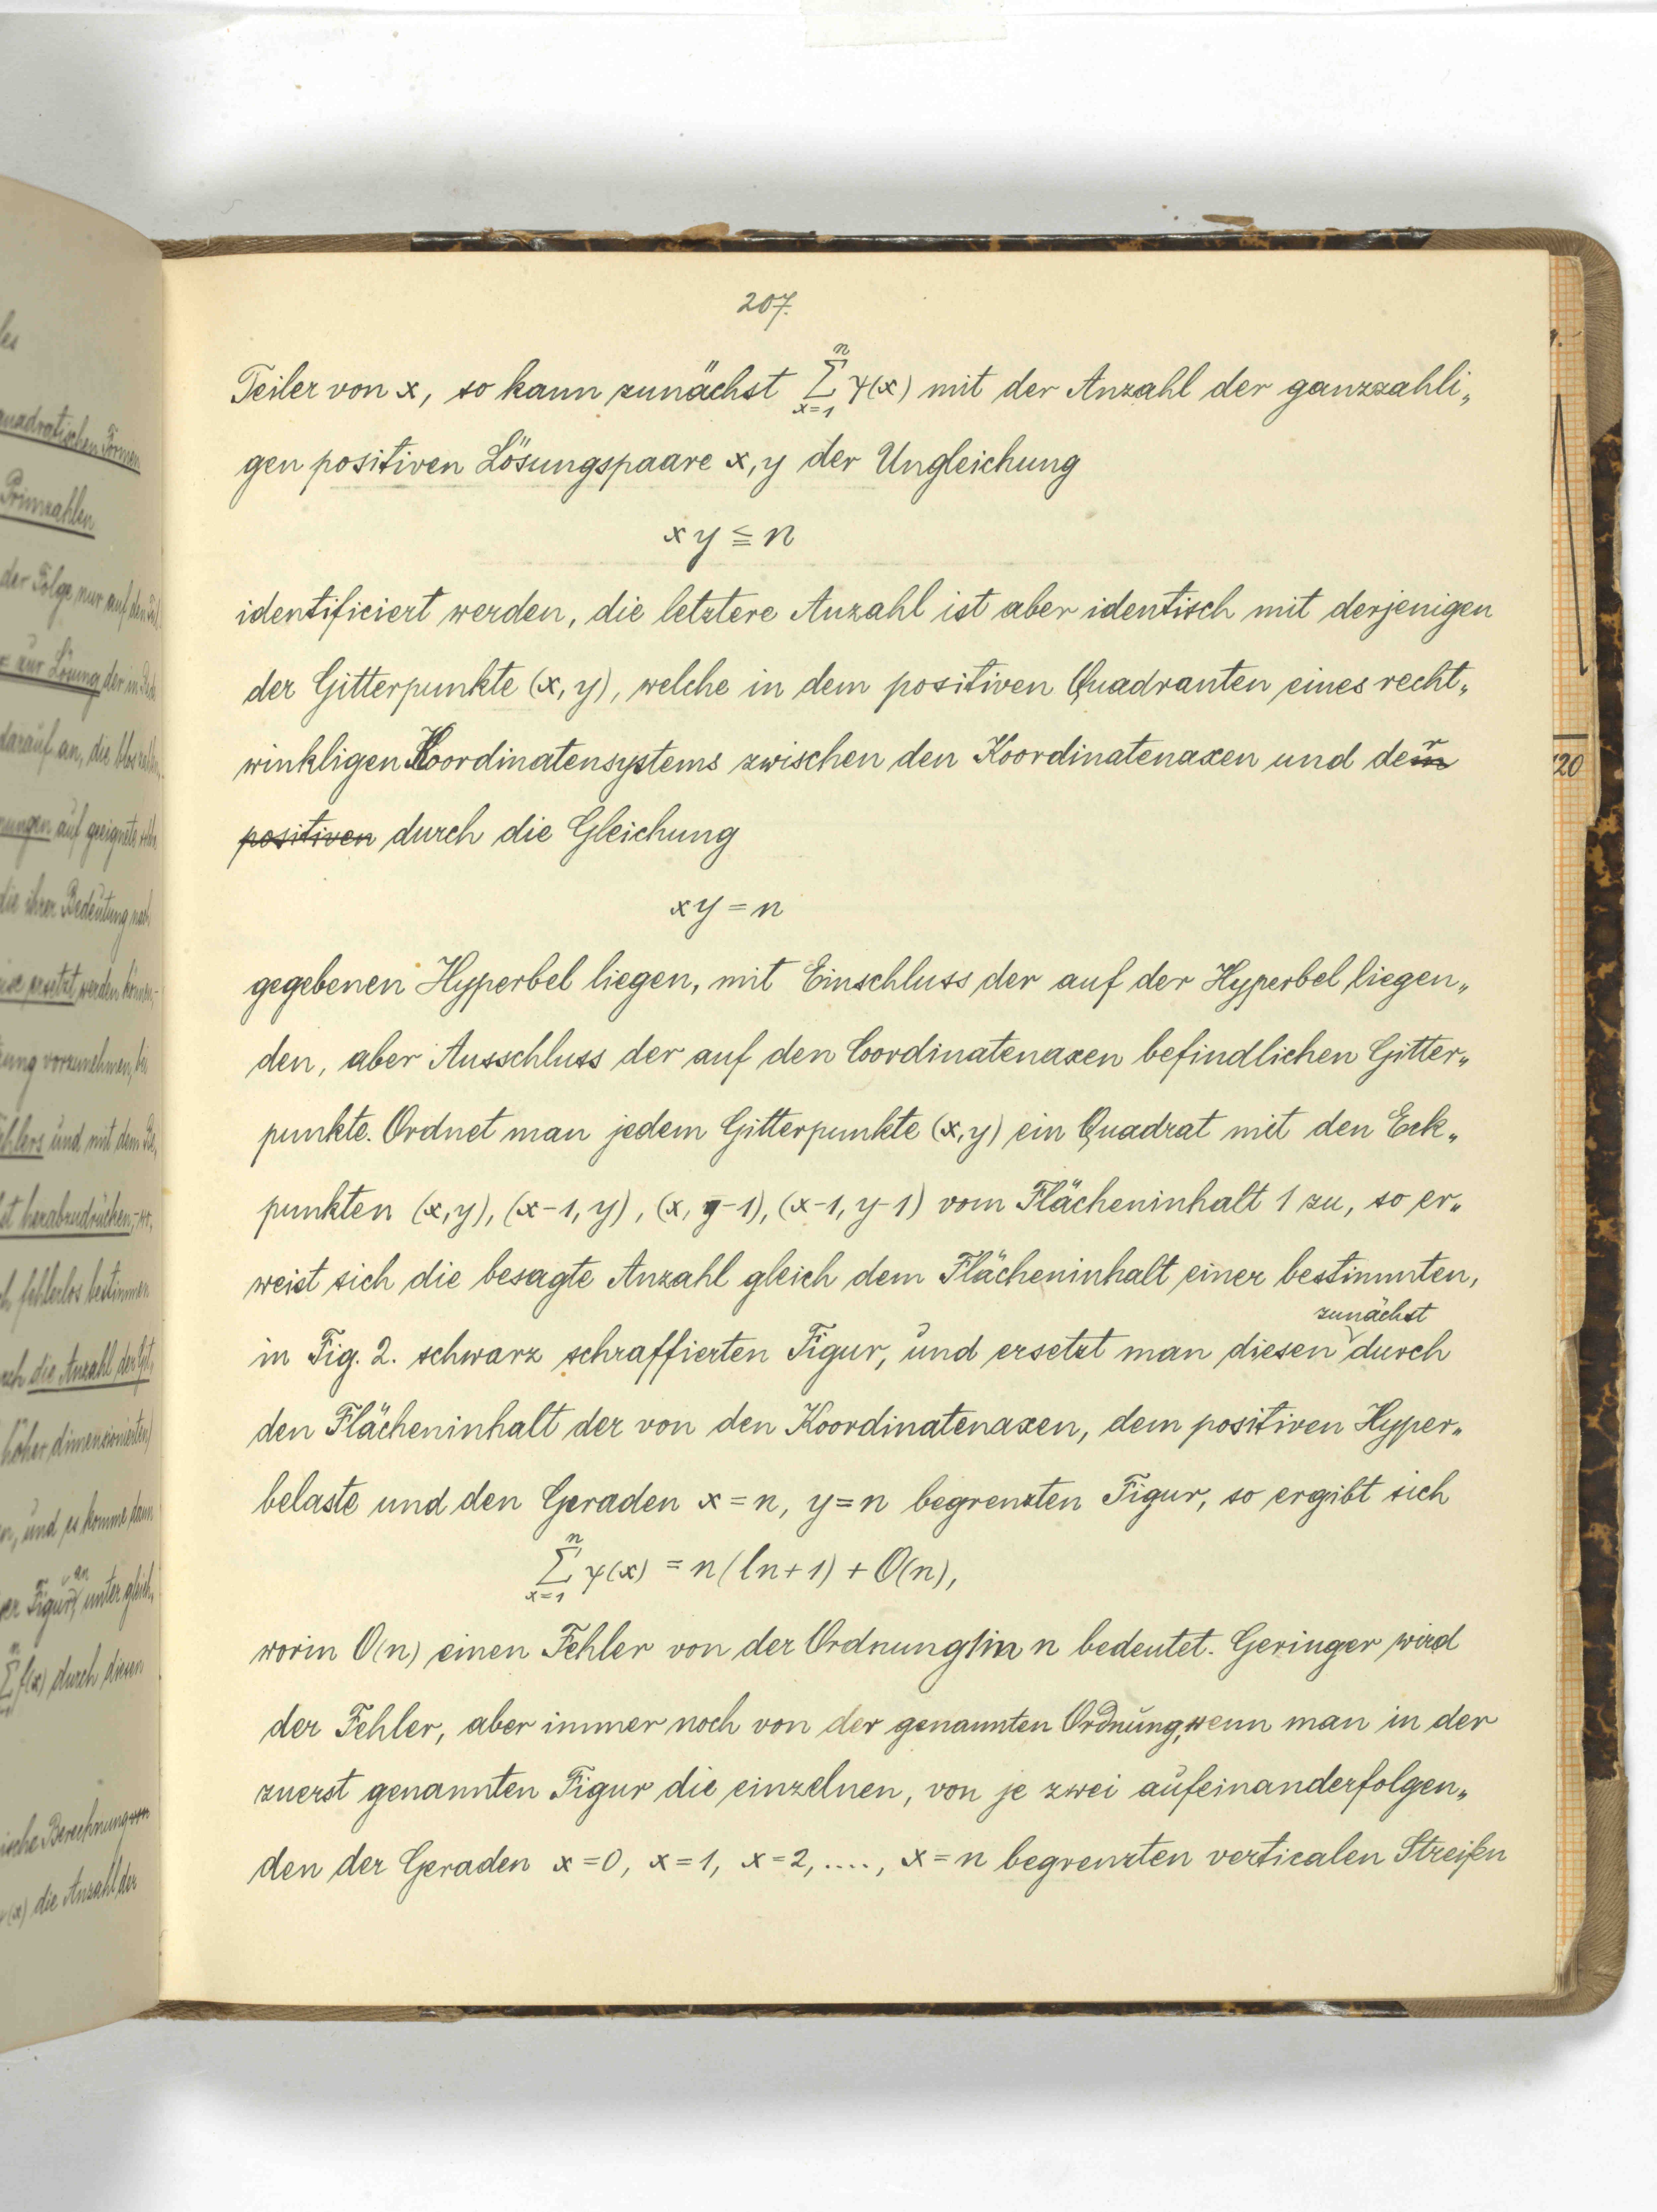 207.
Teiler von x, so kann zunächst $\sum_{x=1}^{n} \psi(x)$ mit der Anzahl der ganzzahli„
gen positiven Lösungspaare x, y der Ungleichung
x y ≦ n
identificiert werden, die letztere Anzahl ist aber identisch mit derjenigen
der Gitterpunkte (x, y), welche in dem positiven Quadranten eines recht„
winkligen Koordinatensystems zwischen den Koordinatenaxen und der
positiven durch die Gleichung
xy = n
gegebenen Hyperbel liegen, mit Einschluss der auf der Hyperbel liegen„
den, aber Ausschluss der auf den Coordinatenaxen befindlichen Gitter„
punkte. Ordnet man jedem Gitterpunkte (x, y) ein Quadrat mit den Eck„
punkten (x, y), (x-1, y), (x, y-1), (x-1, y-1) vom Flächeninhalt 1 zu, so er„
weist sich die besagte Anzahl gleich dem Flächeninhalt einer bestimmten,
zunächst
in Fig. 2. schwarz schraffierten Figur, und ersetzt man diesen durch
den Flächeninhalt der von den Koordinatenaxen, dem positiven Hyper„
belaste und den Geraden x = n, y = n begrenzten Figur, so ergibt sich
$\sum_{x=1}^{n} \psi(x)$ = n(ln + 1) + O(n),
worin O(n) einen Fehler von der Ordnung in n bedeutet. Geringer wird
der Fehler, aber immer noch von der genannten Ordnung, wenn man in der
zuerst genannten Figur die einzelnen, von je zwei aufeinanderfolgen„
den der Geraden x = 0, x = 1, x = 2, ...., x = n begrenzten verticalen Streifen
quadratischen Formen
Primzahlen
der Folge nur auf
zur Lösung der in
darauf an, die
auf geeignete
die ihrer Bedeutung nach
ersetzt werden
vorzunehmen,
und mit dem
herabzudrücken,
fehlerlos bestimmen
die Anzahl der
höher dimensionierten
und es komme dann
unter
durch diesen
Berechnung
die Anzahl der
120